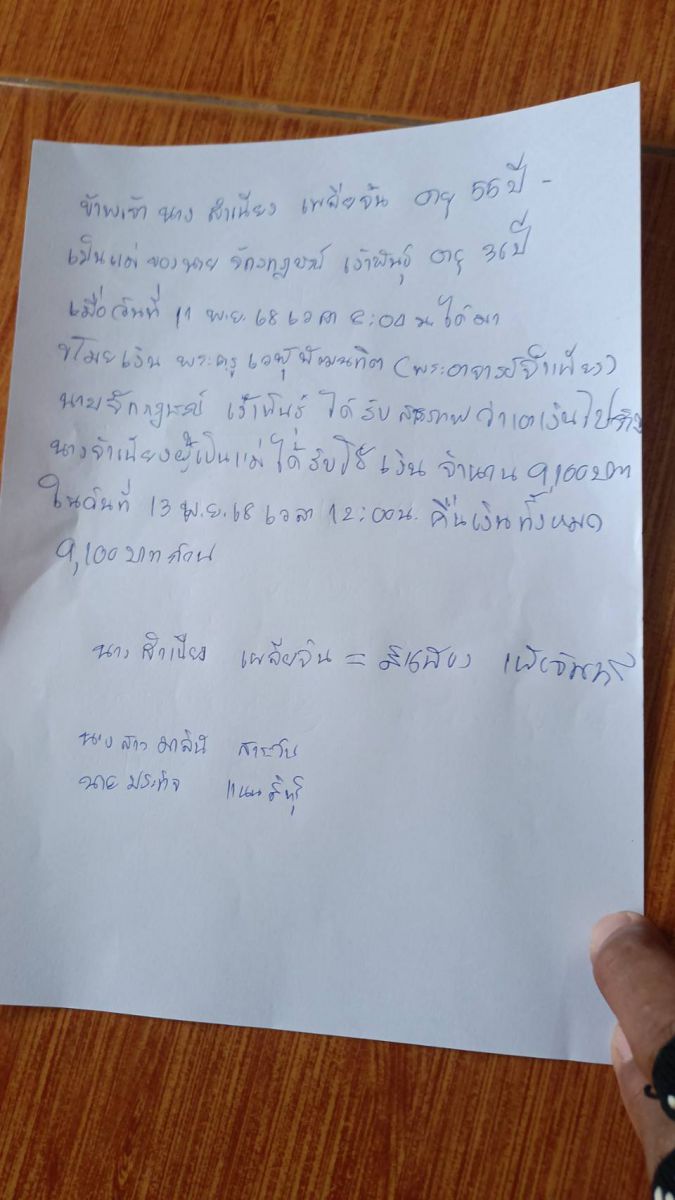 ข้าพเจ้า นาง สำเนียง เพลียจัน อายุ 55 ปี -
เป็นแม่ ของนาย จักรกฤษณ์ เจ้าพันธุ์ อายุ 36 ปี
เมื่อวันที่ 11 พ.ย. 68 เวลา 8:00 น. ได้มา
ขโมยเงิน พระครู (พระอาจารย์จำเนียง)
นายจักกฤษณ์ เจ้าพันธุ์ ได้รับสารภาพ ว่าเอาเงินไปจริง
นางจำเนียงผู้เป็นแม่ได้รับใช้ เงิน จำนวน 9,100 บาท
ในวันที่ 13 พ.ย. 68 เวลา 12:00 น. คืนเงินทั้งหมด
9,100 บาทถ้วน
นาง สำเนียง เพลียจัน =
นางสาว มาลินี
นาย ประทีป